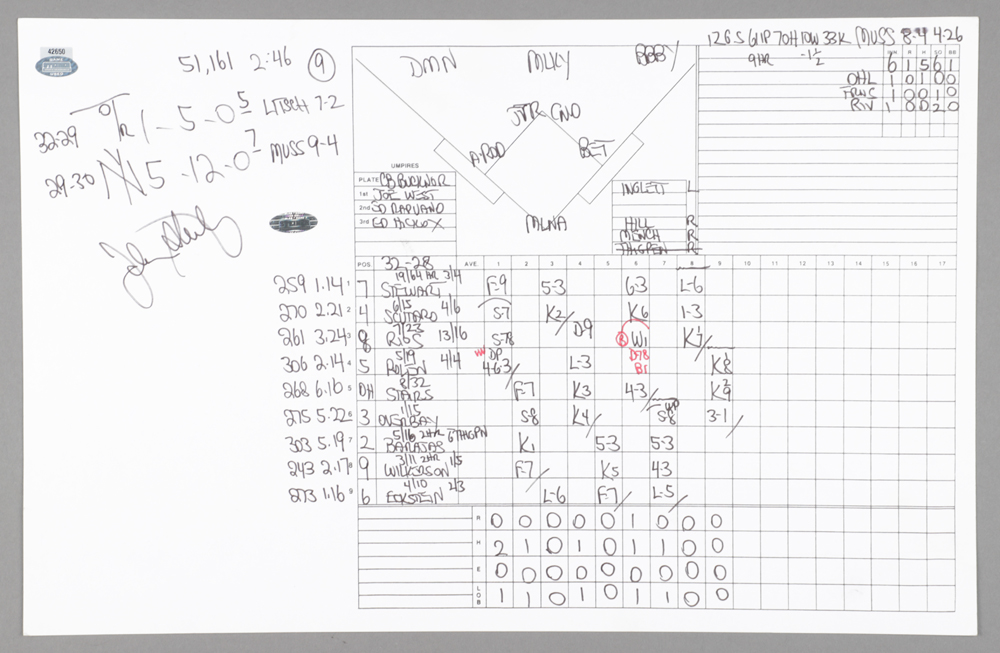 42650
51,161 2:46 9
32-29 1-5-0 5 LITSCH 7-2
29-30 NY 5-12-0 7 MUSS 9-4
12GS 61IP 70H 10W 33K MUSS 8-4 4-26
9HR -1½
INN R H SO BB
6 1 5 6 1
OHL 1 0 1 0 0
FRWS 1 0 0 1 0
RIV 1 0 0 2 0
DMN MLKY BBBY
JTR CNO
A-ROD BET
MLNA
UMPIRES
PLATE CB BUCKNOR
1st JOE WEST
2nd ED RAPUANO
3rd ED HICKOX
INGLETT L
HILL R
MENCH R
THGPEN R
32-28
POS. AVE. 1 2 3 4 5 6 7 8 9 10 11 12 13 14 15 16 17
19/64 4HR 3/4
259 1.14 1 7 STEWART F-9 5-3 6-3 L-6
6/15 4/6
270 2.21 2 4 SCUTARO S-7 K2 K6 1-3
7/23 13/16
261 3.24 3 8 RIOS S-78 D-9 W1 K7
5/19 4/4
306 2.14 4 5 ROLEN DP 4-6-3 L-3 D78 K8
8/32
268 6.16 5 DH STAIRS F-7 K3 4-3 K9
1/15
275 5.22 6 3 OVERBAY S-8 K4 S8 3-1
5/16 2HR
303 5.19 7 2 BARAJAS K1 5-3 5-3
3/11 2HR 1/5
243 2.17 8 9 WILKERSON F-7 K5 4-3
4/10 2/3
273 1.16 9 6 ECKSTEIN L-6 F-7 L-5
R 0 0 0 0 0 1 0 0 0
H 2 1 0 1 0 1 1 0 0
E 0 0 0 0 0 0 0 0 0
LOB 1 1 0 1 0 1 1 0 0